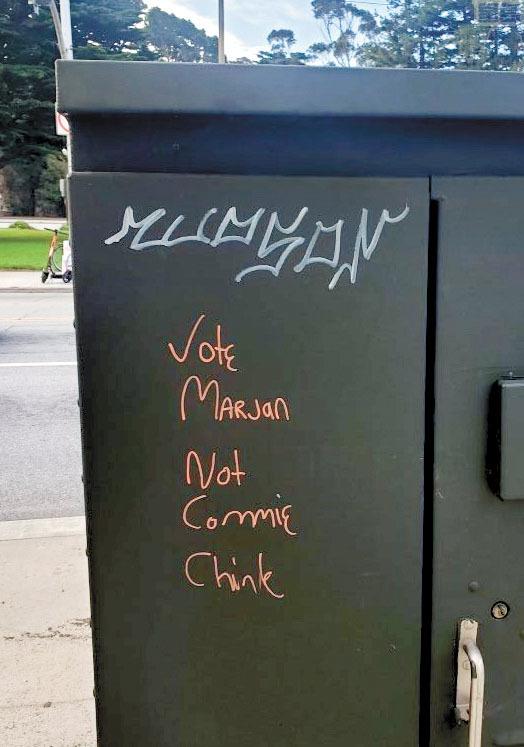 Vote
Marjan
Not
Commie
Chink